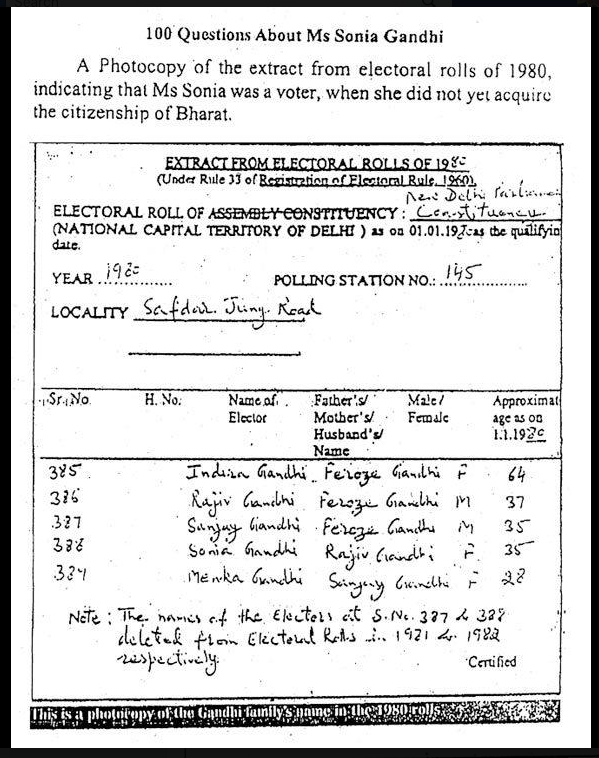 100 Questions About Ms Sonia Gandhi
A Photocopy of the extract from electoral rolls of 1980,
indicating that Ms Sonia was a voter, when she did not yet acquire
the citizenship of Bharat.
EXTRACT FROM ELECTORAL ROLLS OF 1980
(Under Rule 33 of Registration of Electoral Rule, 1960)
New Delhi Parliament
ELECTORAL ROLL OF ASSEMBLY CONSTITUENCY : Constituency
(NATIONAL CAPITAL TERRITORY OF DELHI ) as on 01.01.19 as the qualifyin
date.
YEAR 1980 POLLING STATION NO.: 145
LOCALITY Safdar Jung Road
Sr. No. H. No. Name of Father's/ Male / Approximat
Elector Mother's/ Female age as on
Husband's/ 1.1.1980
Name
385 Indira Gandhi Feroze Gandhi F 64
386 Rajiv Gandhi Feroze Gandhi M 37
387 Sanjay Gandhi Feroze Gandhi M 35
388 Sonia Gandhi Rajiv Gandhi F 35
389 Menka Gandhi Sanjay Gandhi F 28
Note : The names of the Electors at S.No. 387 & 388
deleted from Electoral Rolls in 1981 & 1982
respectively.
Certified
This is a photocopy of the Gandhi family's name in the 1980 rolls